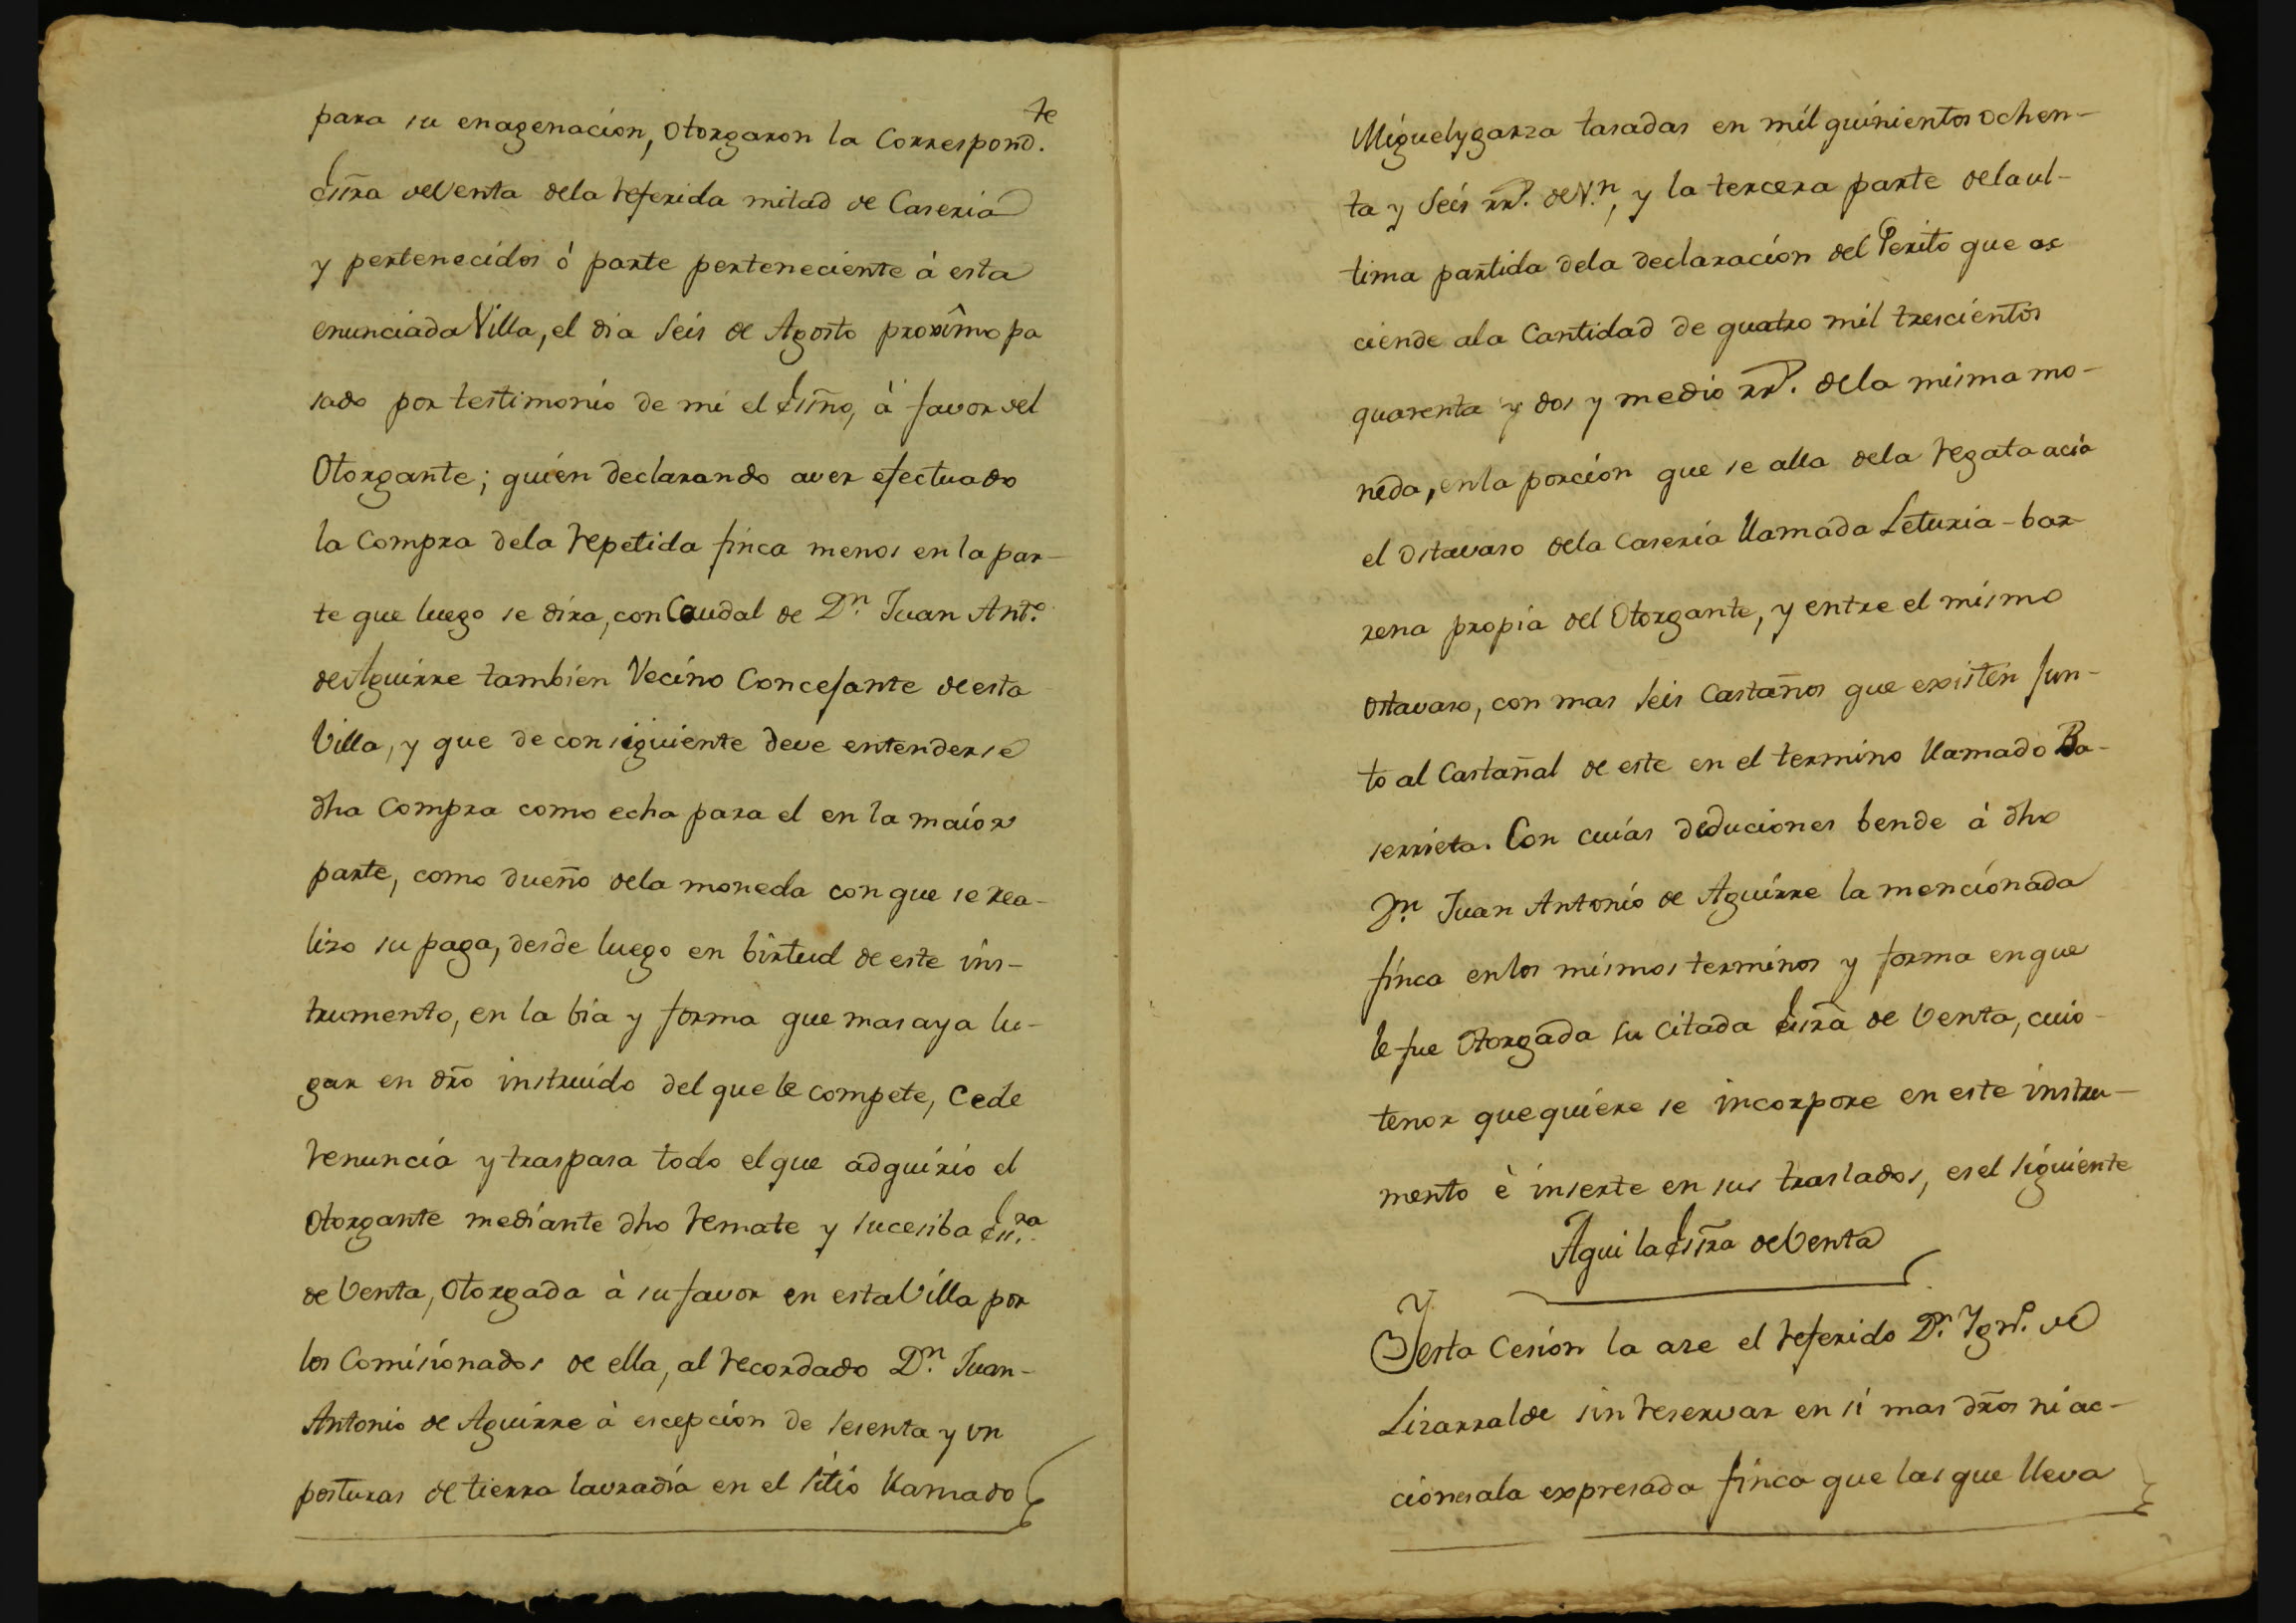 para su enagenacion, otorgaron la Correspond.te
Essra de Venta dela referida mitad de Caseria
y pertenecidos ó parte perteneciente á esta
enunciada Villa, el dia seis de Agosto proximo pa
sado por testimonio de mi el Essno, á favor del
Otorgante; quien declarando aver efectuado
la Compra dela repetida finca menos en la par-
te que luego se dira, con Caudal de Dn. Juan Anto.
de Aguirre tambien Vecino Concejante de esta
Villa, y que de consiguiente deve entenderse
dha Compra como echa para el en la maior
parte, como dueño dela moneda con que se rea-
lizo su paga, desde luego en birtud de este ins-
trumento, en la bia y forma que mas aya lu-
gar en dro instruido del que le compete, Cede
renuncia y traspasa todo el que adquirio el
otorgante mediante dho remate y sucesiba Ess.ra
de Venta, otorgada á su favor en esta Villa por
los Comisionados de ella, al recordado Dn. Juan-
Antonio de Aguirre á escepcion de sesenta y un
posturas de tierra lavradia en el sitio llamado
Miguelygarza tasadas en mil quinientos ochen-
ta y seis rr.s de V.n, y la tercera parte dela ul-
tima partida dela declaracion del Perito que as
ciende ala Cantidad de quatro mil trescientos
quarenta y dos y medio rr.s dela misma mo-
neda, en la porcion que se alla dela regata acia
el ostavaso dela Caseria llamada Leturia-bar
rena propia del Otorgante, y entre el mismo
ostavaso, con mas seis Castaños que existen jun-
to al Castañal de este en el termino llamado Ba-
serrieta. Con cuias deduciones bende á dho
Dn. Juan Antonio de Aguirre la mencionada
finca en los mismos terminos y forma en que
le fue otorgada su citada Essra de Venta, cuio
tenor que quiere se incorpore en este instru-
mento è inserte en sus traslados, es el siguiente
Aqui la Essra de Venta
Y esta Cesion la aze el referido Dn. Ygn.o de
Lizarralde sin reservar en si mas dros ni ac-
ciones ala expresada finca que las que lleva